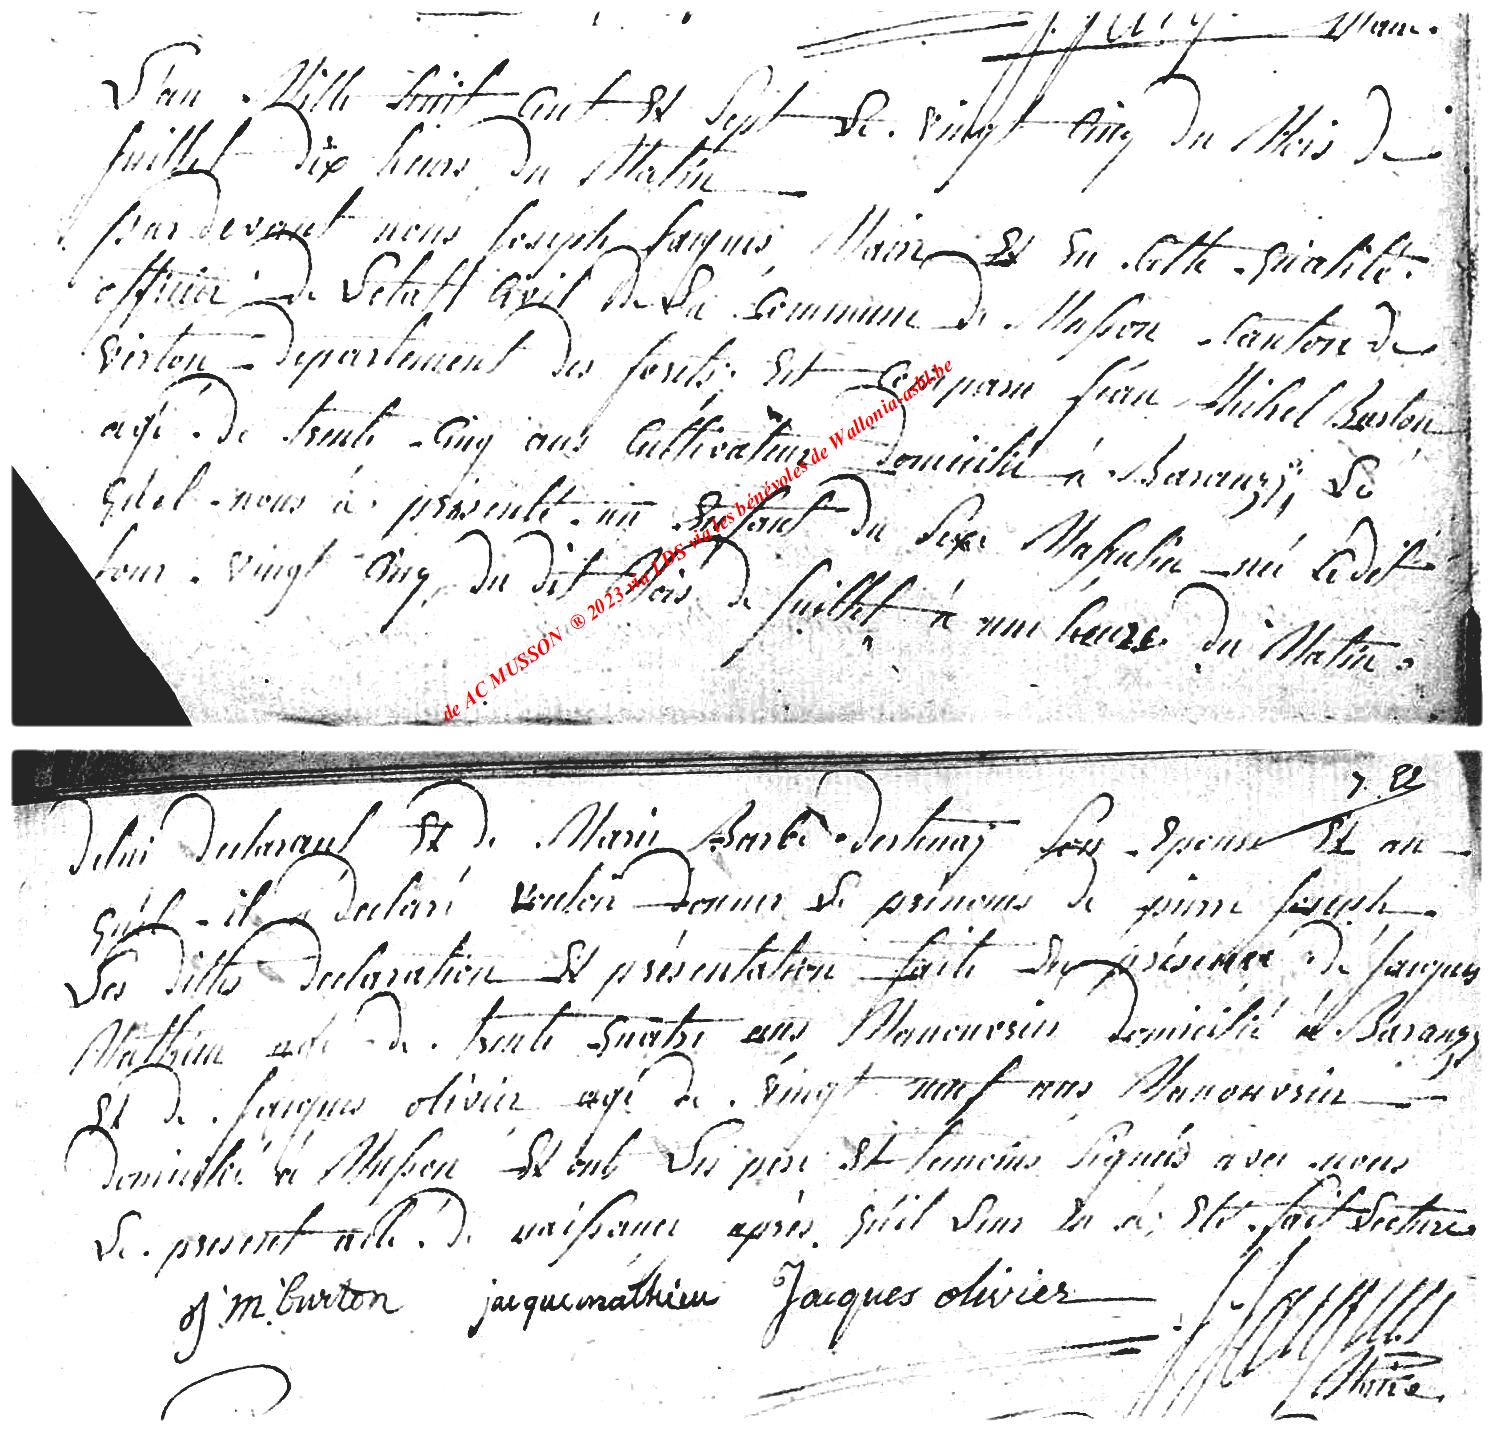 Maire.
L'an Mille huit Cent Et Sept Le vingt Cinq du Mois de
Juillet dix heures du Matin
pardevant nous Joseph Jacques Maire Et En Cette qualité
officier de Letatt Civil de La Commune de Musson Canton de
virton departement des forets, Est Comparu Jean Michel Burton
agé de trente Cinq ans Cultivateur domicilié à Baranzy, Le
quel nous à présenté un Enfant du Sexe Masculin né Ledit
Jour vingt Cinq du dit Mois de Juillet à une heure du Matin
de AC MUSSON ® 2023 via LDS via les bénévoles de Wallonia-asbl.be
7. Et
delui declarant Et de Marie Barbe dertenay Son Epouse Et au
quel il a declaré vouloir donner Le prénoms de pierre Joseph
Les dittes declaration Et présentation faite En présence de Jacques
Mathieu agé de trente quatre ans Manouvrier domicilié à Baranzy
Et de Jacques olivier agé de vingt neuf ans Manouvrier
domicilié à Musson Et ont Les pere Et temoins Signés avec nous
Le present acte de naissance après qu'il Leur En à Eté fait Lecture
J: m: burton jacque mathieu Jacques olivier J. Jacques
Maire